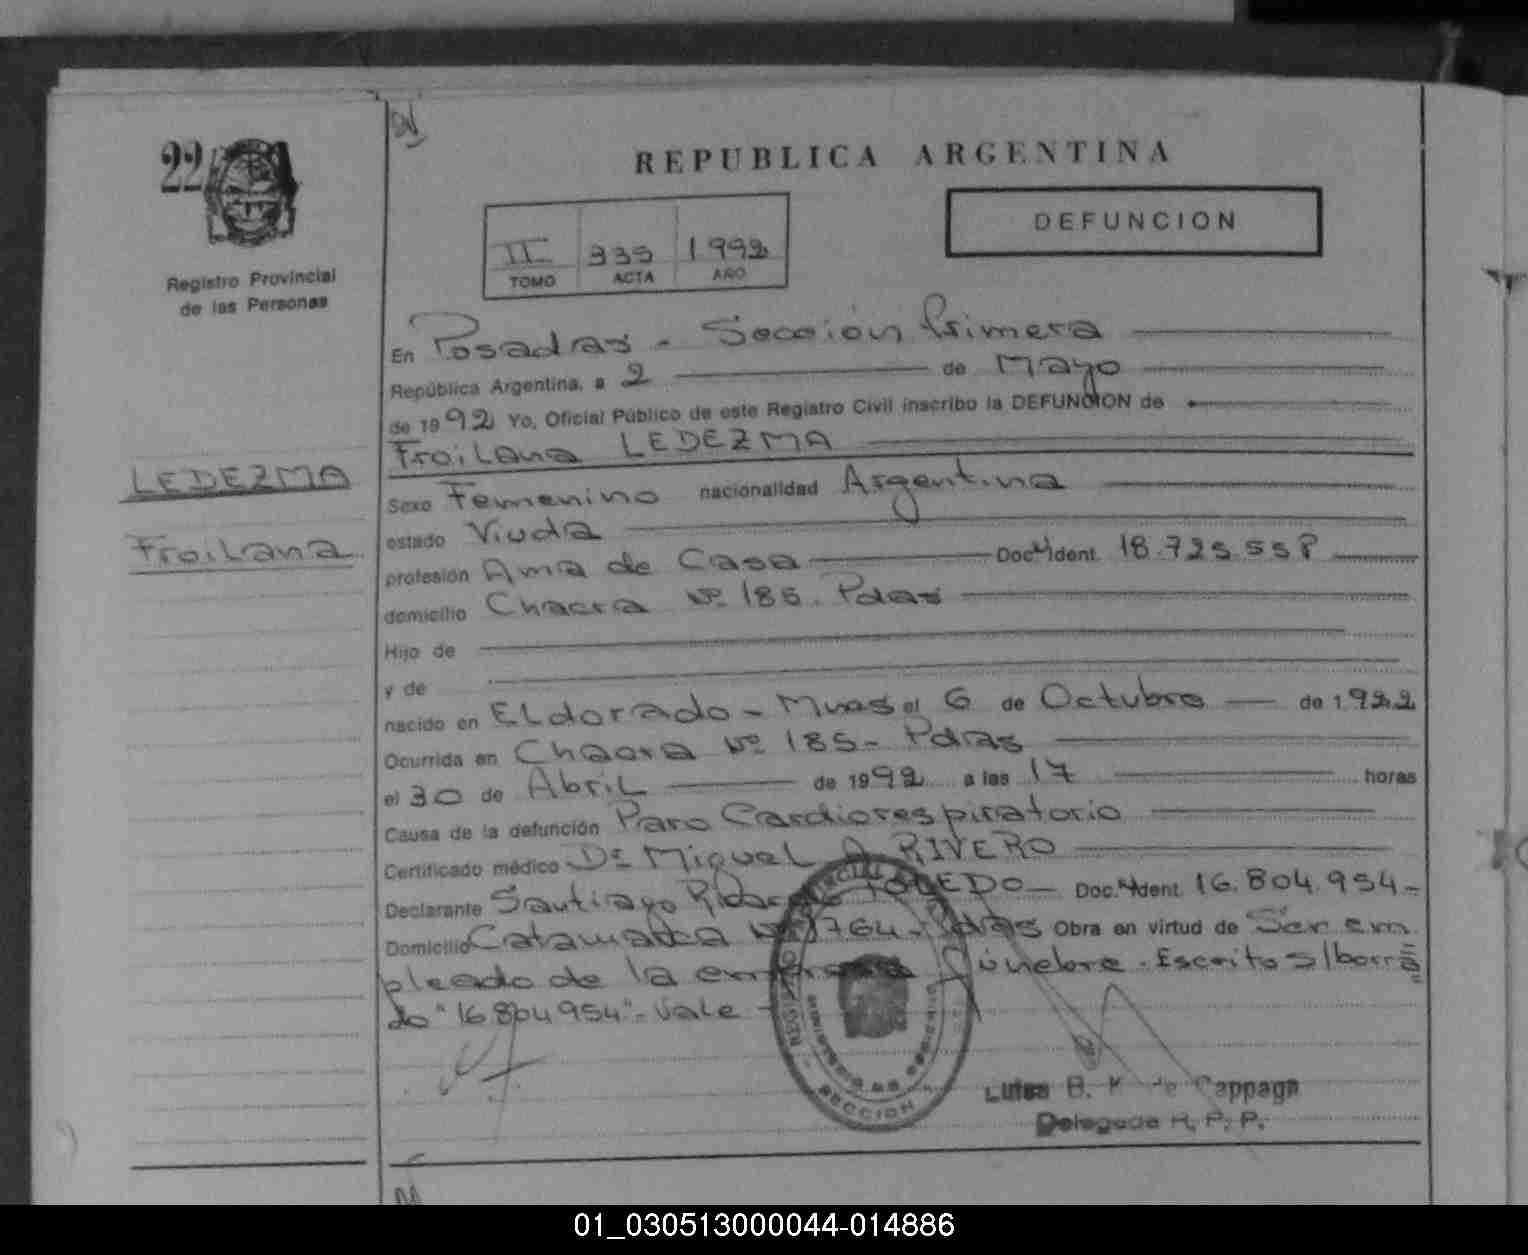 22
Registro Provincial
de las Personas
LEDEZMA
Froilana
REPUBLICA ARGENTINA
DEFUNCION
II 335 1992
TOMO ACTA AÑO
En Posadas - Sección Primera
República Argentina, a 2 de Mayo
de 1992 Yo, Oficial Público de este Registro Civil inscribo la DEFUNCION de
Froilana LEDEZMA
Sexo Femenino nacionalidad Argentina
estado Viuda
profesión Ama de Casa Doc. Ident. 18.725.558
domicilio Chacra Nº 185. Pdas
Hijo de
y de
nacido en Eldorado - Mnes el 6 de Octubre de 1922
Ocurrida en Chacra Nº 185- Pdas
el 30 de Abril de 1992 a las 17 horas
Causa de la defunción Paro Cardiorespiratorio
Certificado médico Dr Miguel A. RIVERO
Declarante Santiago Ricardo TOLEDO Doc. Ident. 16.804.954-
Domicilio Catamarca Nº 1764- Pdas Obra en virtud de Ser em
pleado de la empresa fúnebre. Escrito s/borra
do "16.804.954"- Vale -
SECCION
Luisa B. K de Cappaga
Delegada R. P. P.
01_030513000044-014886